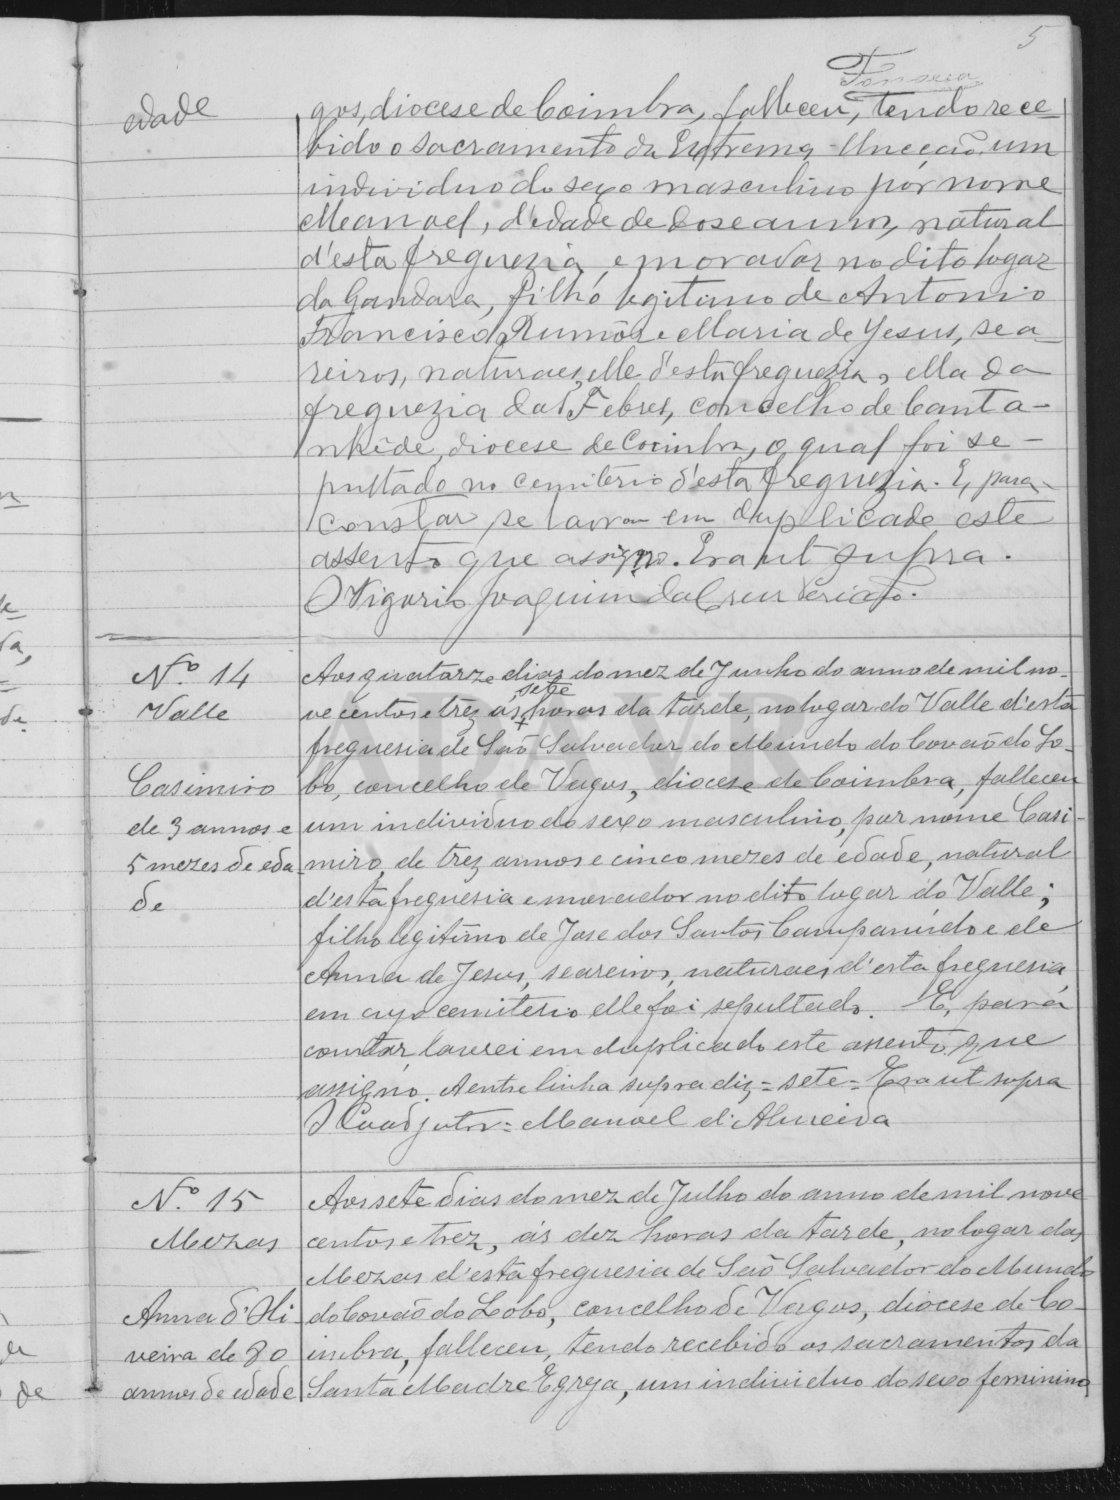 5
Fonseca
edade
gos, diocese de Coimbra, falleceu, tendo rece-
bido o sacramento da Extrema-Uncção, um
individuo do sexo masculino por nome
Manoel, d'edade de dose annos, natural
d'esta freguezia, e morador no dito logar
da Gandara, filho legitimo de Antonio
Francisco Rumôr e Maria de Jesus, sea-
reiros, naturaes, elle d'esta freguezia, ella da
freguezia das Febres, concelho de Canta-
nhêde, diocese de Coimbra, o qual foi se-
pultado no cemiterio d'esta freguezia. E, para
constar se lavrou em duplicado este
assento que assigno. Era ut supra.
O Vigario Joaquim da Cruz
Nº 14
Valle
Casimiro
de 3 annos e
5 mezes de eda-
de
Aos quatorze dias do mez de Junho do anno de mil no-
sete
vecentos e trez ás horas da tarde, no logar do Valle d'esta
freguesia de São Salvador do Mundo do Covão do Lo-
bo, concelho de Vagos, diocese de Coimbra, falleceu
um individuo do sexo masculino, por nome Casi-
miro, de trez annos e cinco mezes de edade, natural
d'esta freguesia e morador no dito logar do Valle;
filho legitimo de Jose dos Santos Campanudo e de
Anna de Jesus, seareiros, naturaes d'esta freguesia,
em cujo cemiterio elle foi sepultado. E, para
constar, lavrei em duplicado este assento, que
assigno. A entrelinha supra diz = sete = Era ut supra
O Coadjutor = Manoel d'Almeida
Nº 15
Mezas
Anna d'Oli-
veira de 80
annos de edade
Aos sete dias do mez de Julho do anno de mil nove
centos e trez, ás dez horas da tarde, no logar das
Mezas d'esta freguesia de São Salvador do Mundo
do Covão do Lobo, concelho de Vagos, diocese de Co-
imbra, falleceu, tendo recebido os sacramentos da
Santa Madre Egreja, um individuo do sexo feminino